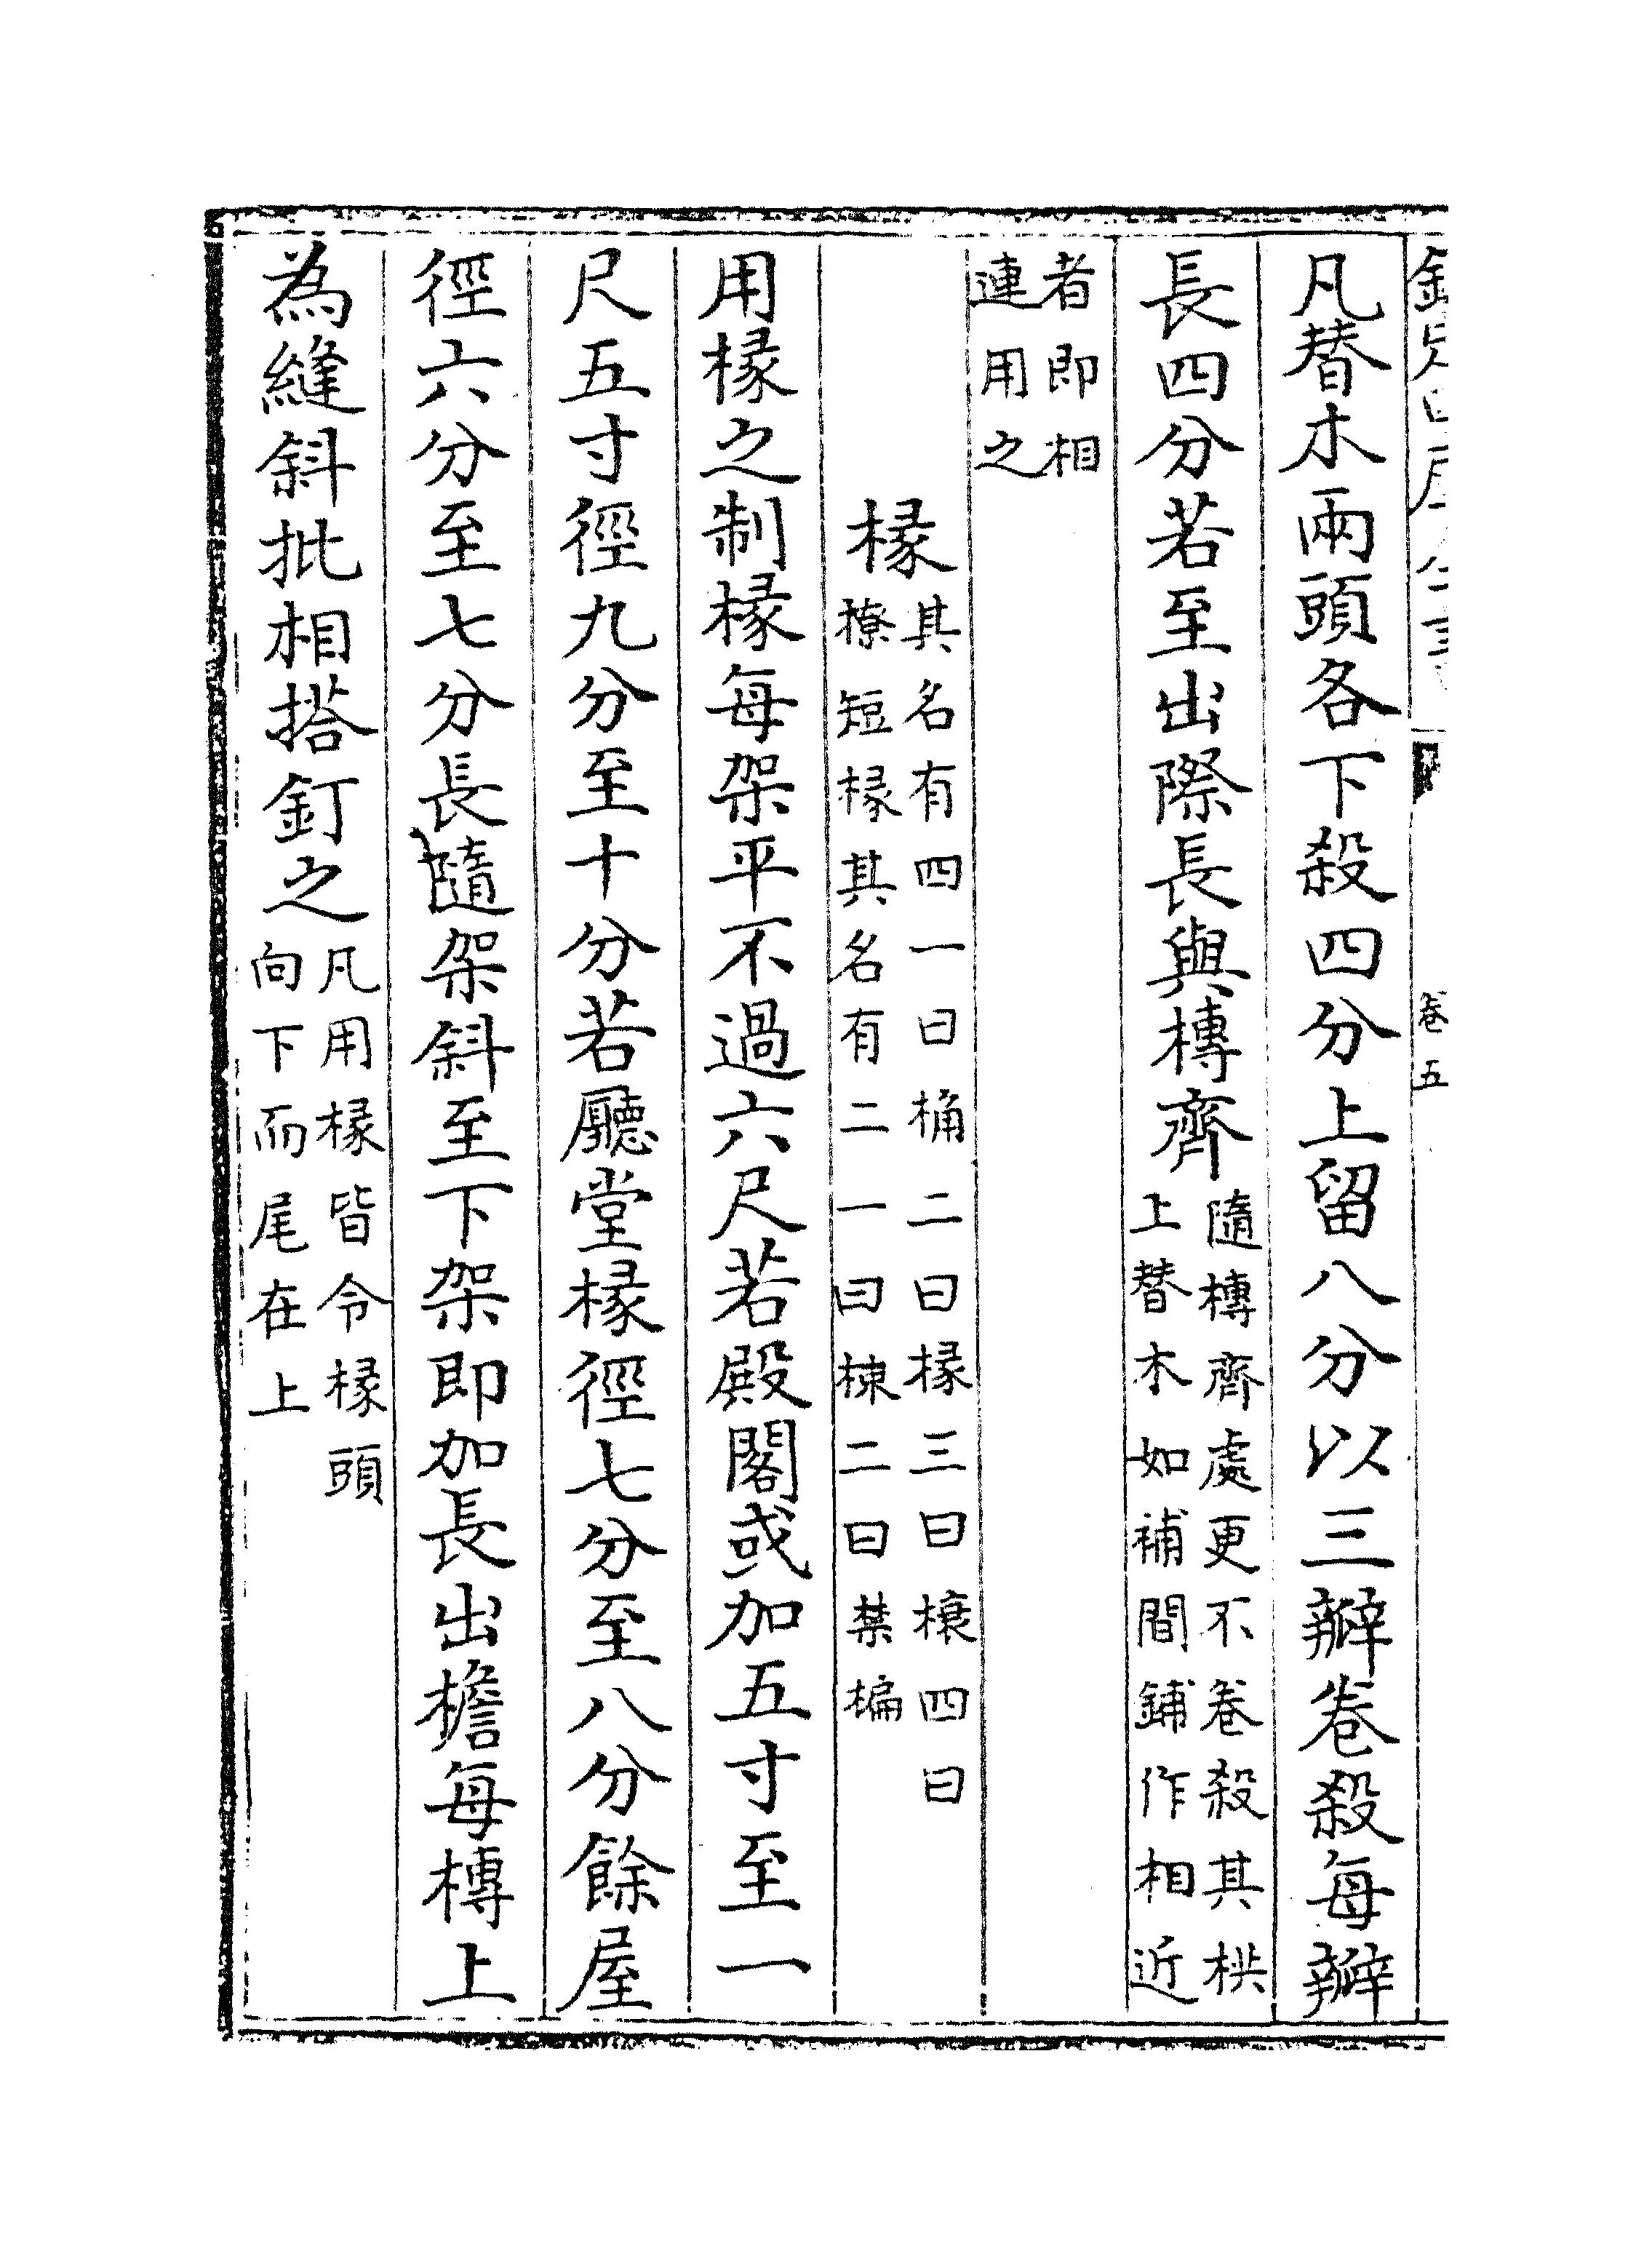 卷五
凡替木兩頭各下殺四分上留八分以三瓣卷殺每瓣
長四分若至出際長與槫齊隨槫齊處更不卷殺其栱
上替木如補間鋪作相近
者即相
連用之
椽其名有四一曰桷二曰椽三曰榱四曰
橑短椽其名有二一曰梀二曰禁楄
用椽之制椽每架平不過六尺若殿閣或加五寸至一
尺五寸徑九分至十分若廳堂椽徑七分至八分餘屋
徑六分至七分長隨架斜至下架即加長出檐每槫上
為縫斜批相搭釘之凡用椽皆令椽頭
向下而尾在上